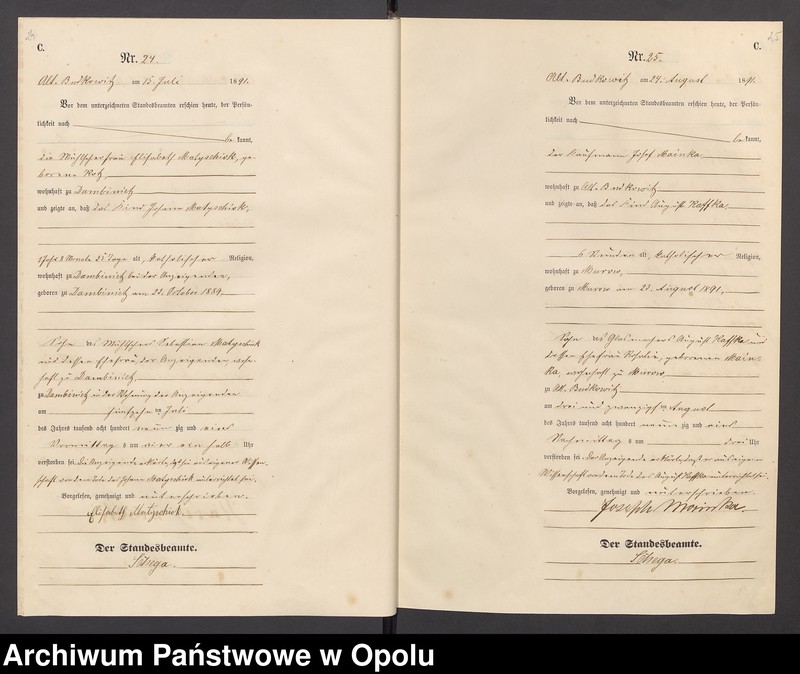 24
C.
Nr. 24.
Alt-Budkowitz am 15. Juli 1891.
Vor dem unterzeichneten Standesbeamten erschien heute, der Persön-
lichkeit nach
be kannt,
die Mühlscherfrau Elisabeth Matyschiok, ge-
borene Kotz
wohnhaft zu Dambinietz
und zeigte an, daß das Kind Johann Matyschiok,
1 Jahr 8 Monate 21 Tage alt, katholischer Religion,
wohnhaft zu Dambinietz bei der Anzeigenden,
geboren zu Dambinietz am 23. October 1889,
Sohn des Sebastian Matyschiok
und dessen Ehefrau, der Anzeigenden, wohn-
haft zu Dambinietz
zu Dambinietz in der Wohnung der Anzeigenden
am fünfzehn ten Juli
des Jahres tausend acht hundert neun zig und eins
Vormittag s um vier ein halb Uhr
verstorben sei. Die Anzeigende erklärte, daß sie aus eigener Wissen-
schaft von dem Tode des Johann Matyschiok unterrichtet sei.
Vorgelesen, genehmigt und unterschrieben.
Elisabeth Matyschiok.
Der Standesbeamte.
25
C.
Nr. 25.
Alt-Budkowitz am 24. August 1891.
Vor dem unterzeichneten Standesbeamten erschien heute, der Persön-
lichkeit nach
be kannt,
der Kaufmann Josef Mainka
wohnhaft zu Alt-Budkowitz
und zeigte an, daß das Kind August Kaffka,
6 Stunden alt, katholischer Religion,
wohnhaft zu Murow,
geboren zu Murow am 23. August 1891,
Sohn des Glasmachers August Kaffka und
dessen Ehefrau Rosalie, geborenen Main-
ka, wohnhaft zu Murow
zu Alt-Budkowitz
am drei und zwanzigsten August
des Jahres tausend acht hundert neun zig und eins
Nachmittag s um drei Uhr
verstorben sei. Der Anzeigende erklärte, daß er aus eigener
Wissenschaft von dem Tode des August Kaffka unterrichtet sei.
Vorgelesen, genehmigt und unterschrieben.
Joseph Mainka.
Der Standesbeamte.
Archiwum Państwowe w Opolu